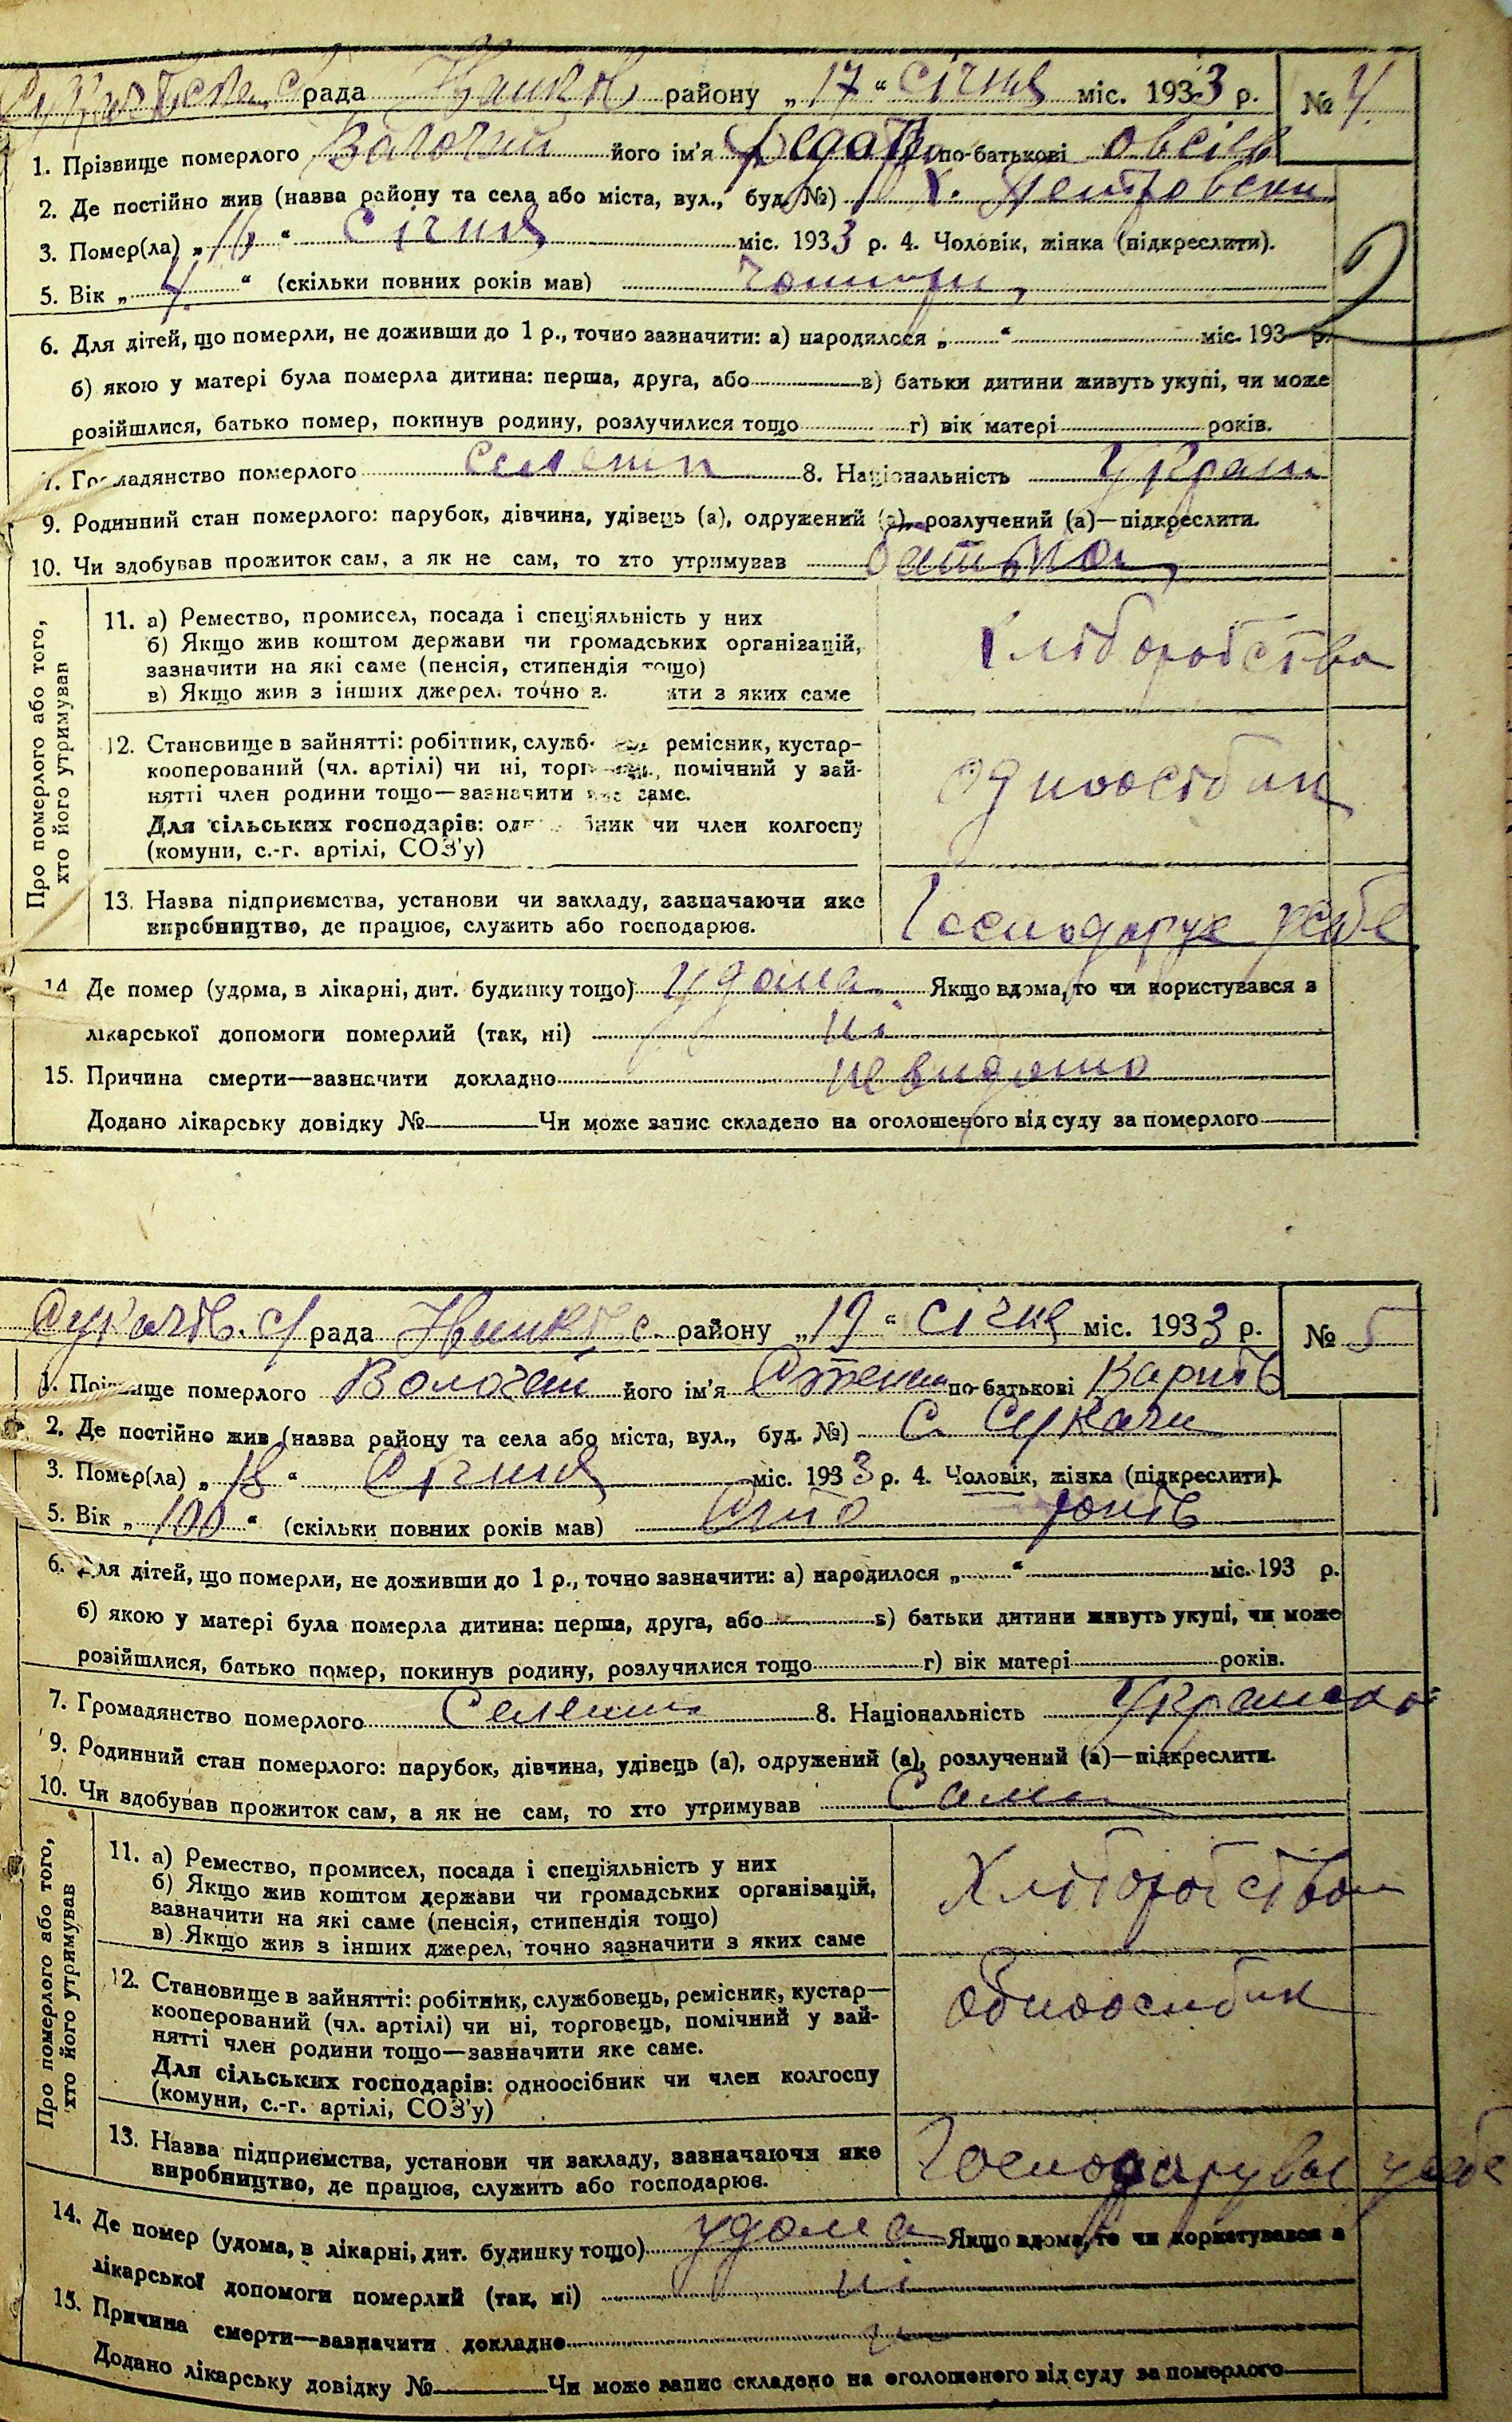 рада району „17“ Січня міс. 1933 р. № 4
1. Прізвище померлого його ім'я по-батькові
2. Де постійно жив (назва району та села або міста, вул., буд. №) х. Петровски
3. Помер(ла) „16“ Січня міс. 1933 р. 4. Чоловік, жінка (підкреслити).
5. Вік „4“ (скільки повних років мав) чотири
6. Для дітей, що померли, не доживши до 1 р., точно зазначити: а) народилося „ “ міс. 193 р.
б) якою у матері була померла дитина: перша, друга, або в) батьки дитини живуть укупі, чи може
розійшлися, батько помер, покинув родину, розлучилися тощо г) вік матері років.
7. Громадянство померлого 8. Національність
9. Родинний стан померлого: парубок, дівчина, удівець (а), одружений (а), розлучений (а)—підкреслити.
10. Чи здобував прожиток сам, а як не сам, то хто утримував батько
Про померлого або того,
хто його утримував
11. а) Ремество, промисел, посада і спеціяльність у них
б) Якщо жив коштом держави чи громадських організацій,
зазначити на які саме (пенсія, стипендія тощо)
в) Якщо жив з інших джерел, точно з ити з яких саме
хліборобства
12. Становище в зайнятті: робітник, служб ремісник, кустар-
кооперований (чл. артілі) чи ні, торг помічний у зай-
нятті член родини тощо—зазначити яке саме.
Для сільських господарів: од бник чи член колгоспу
(комуни, с.-г. артілі, СОЗ'у)
одноосібник
13. Назва підприємства, установи чи закладу, зазначаючи яке
виробництво, де працює, служить або господарює.
Господарує усебе
14 Де помер (удома, в лікарні, дит. будинку тощо) удома Якщо вдома, то чи користувався з
лікарської допомоги померлий (так, ні) ні
15. Причина смерти—зазначити докладно невидомо
Додано лікарську довідку № Чи може запис складено на оголошеного від суду за померлого
Сукачів. с/рада району „19“ Січня міс. 1933 р. № 5
1. Прізвище померлого Волочай його ім'я по-батькові
2. Де постійно жив (назва району та села або міста, вул., буд. №) С. Сукачи
3. Помер(ла) „18“ Січня міс. 1933 р. 4. Чоловік, жінка (підкреслити).
5. Вік „100“ (скільки повних років мав) Сто років
6. Для дітей, що померли, не доживши до 1 р., точно зазначити: а) народилося „ “ міс. 193 р.
б) якою у матері була померла дитина: перша, друга, або в) батьки дитини живуть укупі, чи може
розійшлися, батько помер, покинув родину, розлучилися тощо г) вік матері років.
7. Громадянство померлого 8. Національність
9. Родинний стан померлого: парубок, дівчина, удівець (а), одружений (а), розлучений (а)—підкреслити.
10. Чи здобував прожиток сам, а як не сам, то хто утримував Сам
Про померлого або того,
хто його утримував
11. а) Ремество, промисел, посада і спеціяльність у них
б) Якщо жив коштом держави чи громадських організацій,
зазначити на які саме (пенсія, стипендія тощо)
в) Якщо жив з інших джерел, точно зазначити з яких саме
Хліборобство
12. Становище в зайнятті: робітник, службовець, ремісник, кустар—
кооперований (чл. артілі) чи ні, торговець, помічний у зай-
нятті член родини тощо—зазначити яке саме.
Для сільських господарів: одноосібник чи член колгоспу
(комуни, с.-г. артілі, СОЗ'у)
одноосибник
13. Назва підприємства, установи чи закладу, зазначаючи яке
виробництво, де працює, служить або господарює.
Господарував усебе
14. Де помер (удома, в лікарні, дит. будинку тощо) удома Якщо вдома, то чи користувався з
лікарської допомоги померлий (так, ні) ні
15. Причина смерти—зазначити докладно
Додано лікарську довідку № Чи може запис складено на оголошеного від суду за померлого